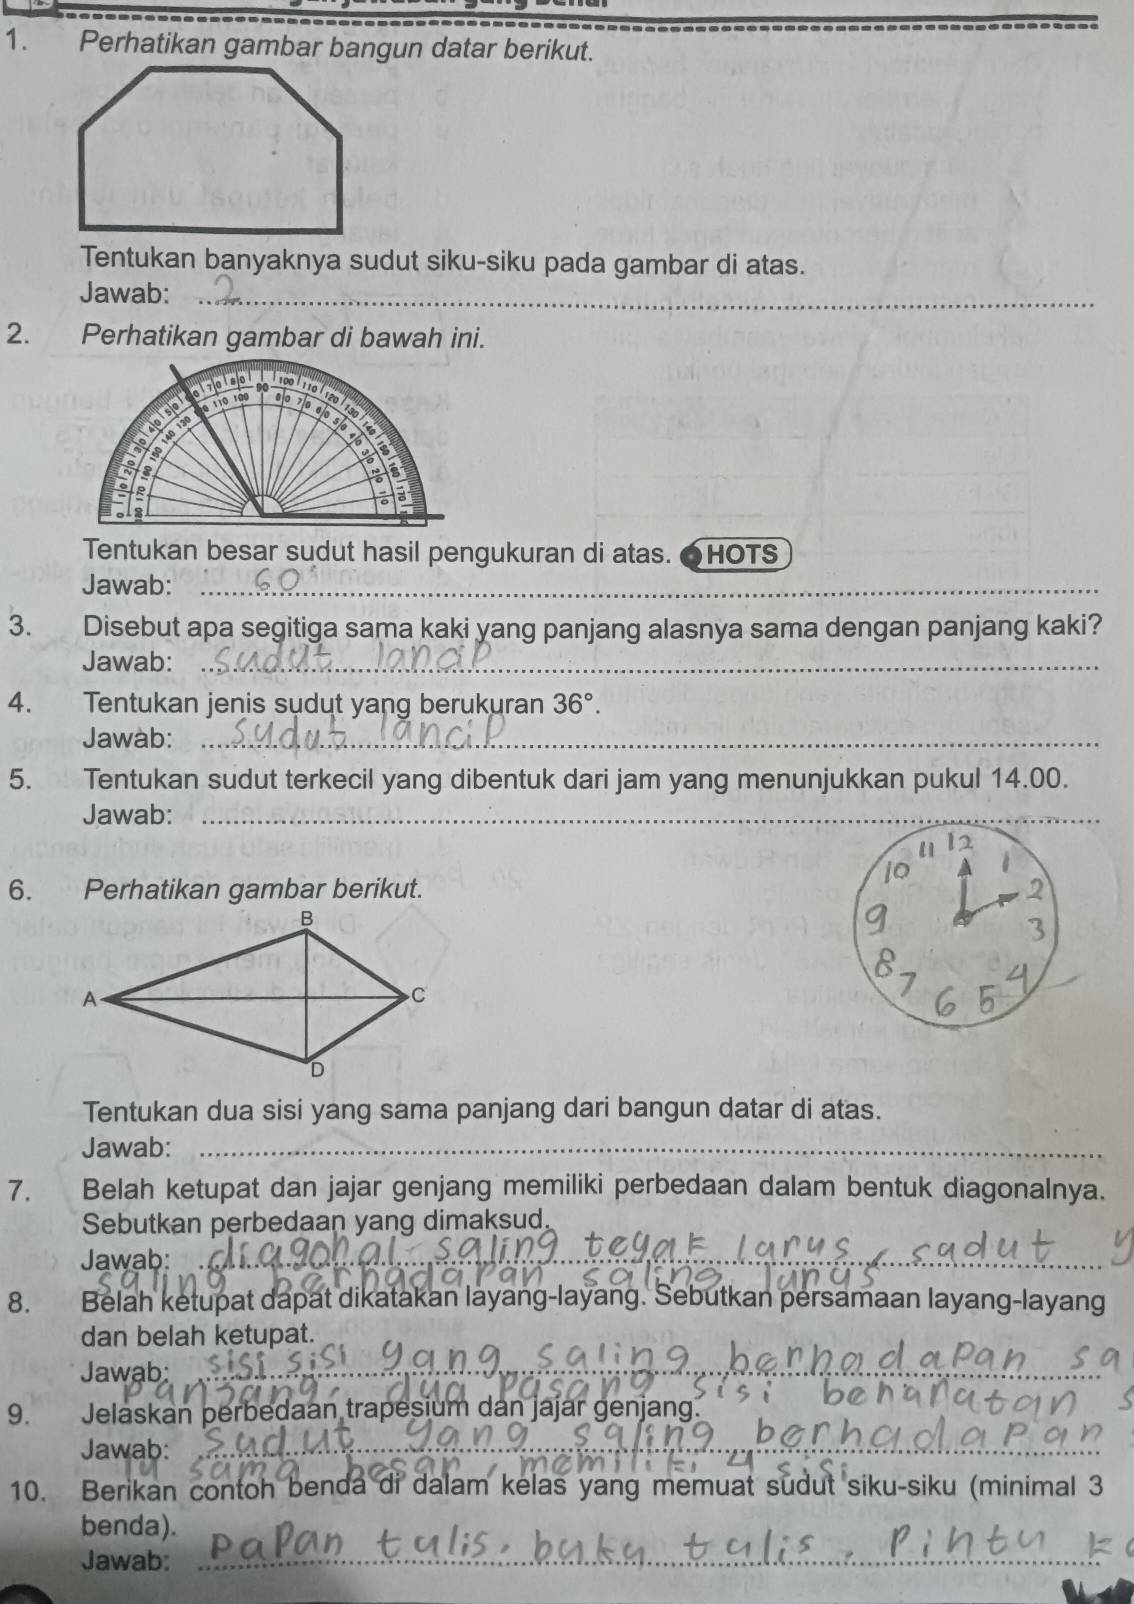 1. Perhatikan gambar bangun datar berikut.
Tentukan banyaknya sudut siku-siku pada gambar di atas.
Jawab: 2
2. Perhatikan gambar di bawah ini.
Tentukan besar sudut hasil pengukuran di atas. HOTS
Jawab: 60°
3. Disebut apa segitiga sama kaki yang panjang alasnya sama dengan panjang kaki?
Jawab: sudut lancip
4. Tentukan jenis sudut yang berukuran 36°.
Jawab: sudut lancip
5. Tentukan sudut terkecil yang dibentuk dari jam yang menunjukkan pukul 14.00.
Jawab:
12
11 1
10 2
9 3
8 4
7 6 5
6. Perhatikan gambar berikut.
B
A C
D
Tentukan dua sisi yang sama panjang dari bangun datar di atas.
Jawab:
7. Belah ketupat dan jajar genjang memiliki perbedaan dalam bentuk diagonalnya.
Sebutkan perbedaan yang dimaksud.
Jawab: diagonal saling tegak larus, sadut y
saling berhadapan saling
8. Belah ketupat dapat dikatakan layang-layang. Sebutkan persamaan layang-layang
dan belah ketupat.
Jawab: sisi sisi yang saling berhadapan sa
dua pasang sisi
9. Jelaskan perbedaan trapesium dan jajar genjang.
Jawab: sudut yang saling berhadapan
sama besar, memiliki 4 sisi
10. Berikan contoh benda di dalam kelas yang memuat sudut siku-siku (minimal 3
benda).
Jawab: papan tulis, buku tulis, pintu k